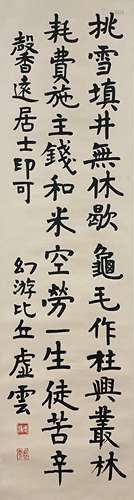 挑雪填井無休歇龜毛作柱興叢林
耗費施主錢和米空勞一生徒苦辛
馨香遠居士印可
幻游比丘虛雲